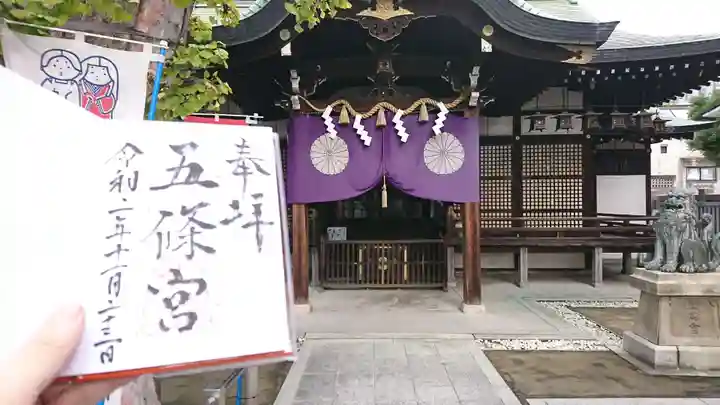 奉拝
五條宮
令和二年十一月二十三日